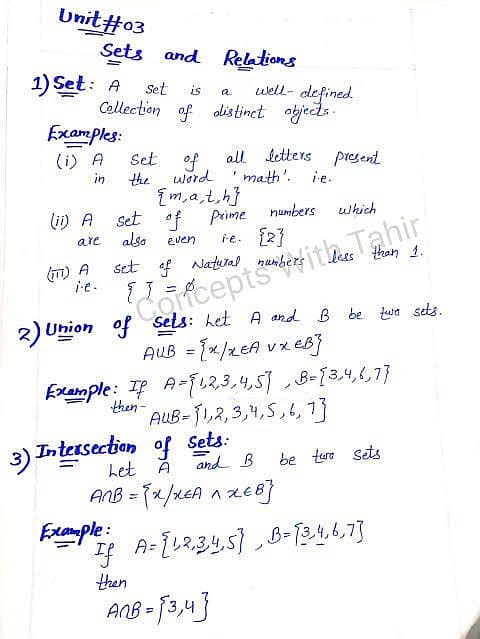 Unit#03
Sets and Relations
1) Set: A set is a well-defined
Collection of distinct objects.
Examples:
(i) A Set of all letters present
in the word 'math'. i.e.
{m,a,t,h}
(ii) A set of Prime numbers which
are also even i.e. {2}
(iii) A set of Natural numbers less than 1.
i.e. { } = ∅
Concepts With Tahir
2) Union of Sets: Let A and B be two sets.
A∪B = {x/x∈A ∨ x∈B}
Example: If A={1,2,3,4,5}, B={3,4,6,7}
then-
A∪B={1,2,3,4,5,6,7}
3) Intersection of Sets:
Let A and B be two sets
A∩B = {x/x∈A ∧ x∈B}
Example:
If A={1,2,3,4,5}, B={3,4,6,7}
then
A∩B={3,4}